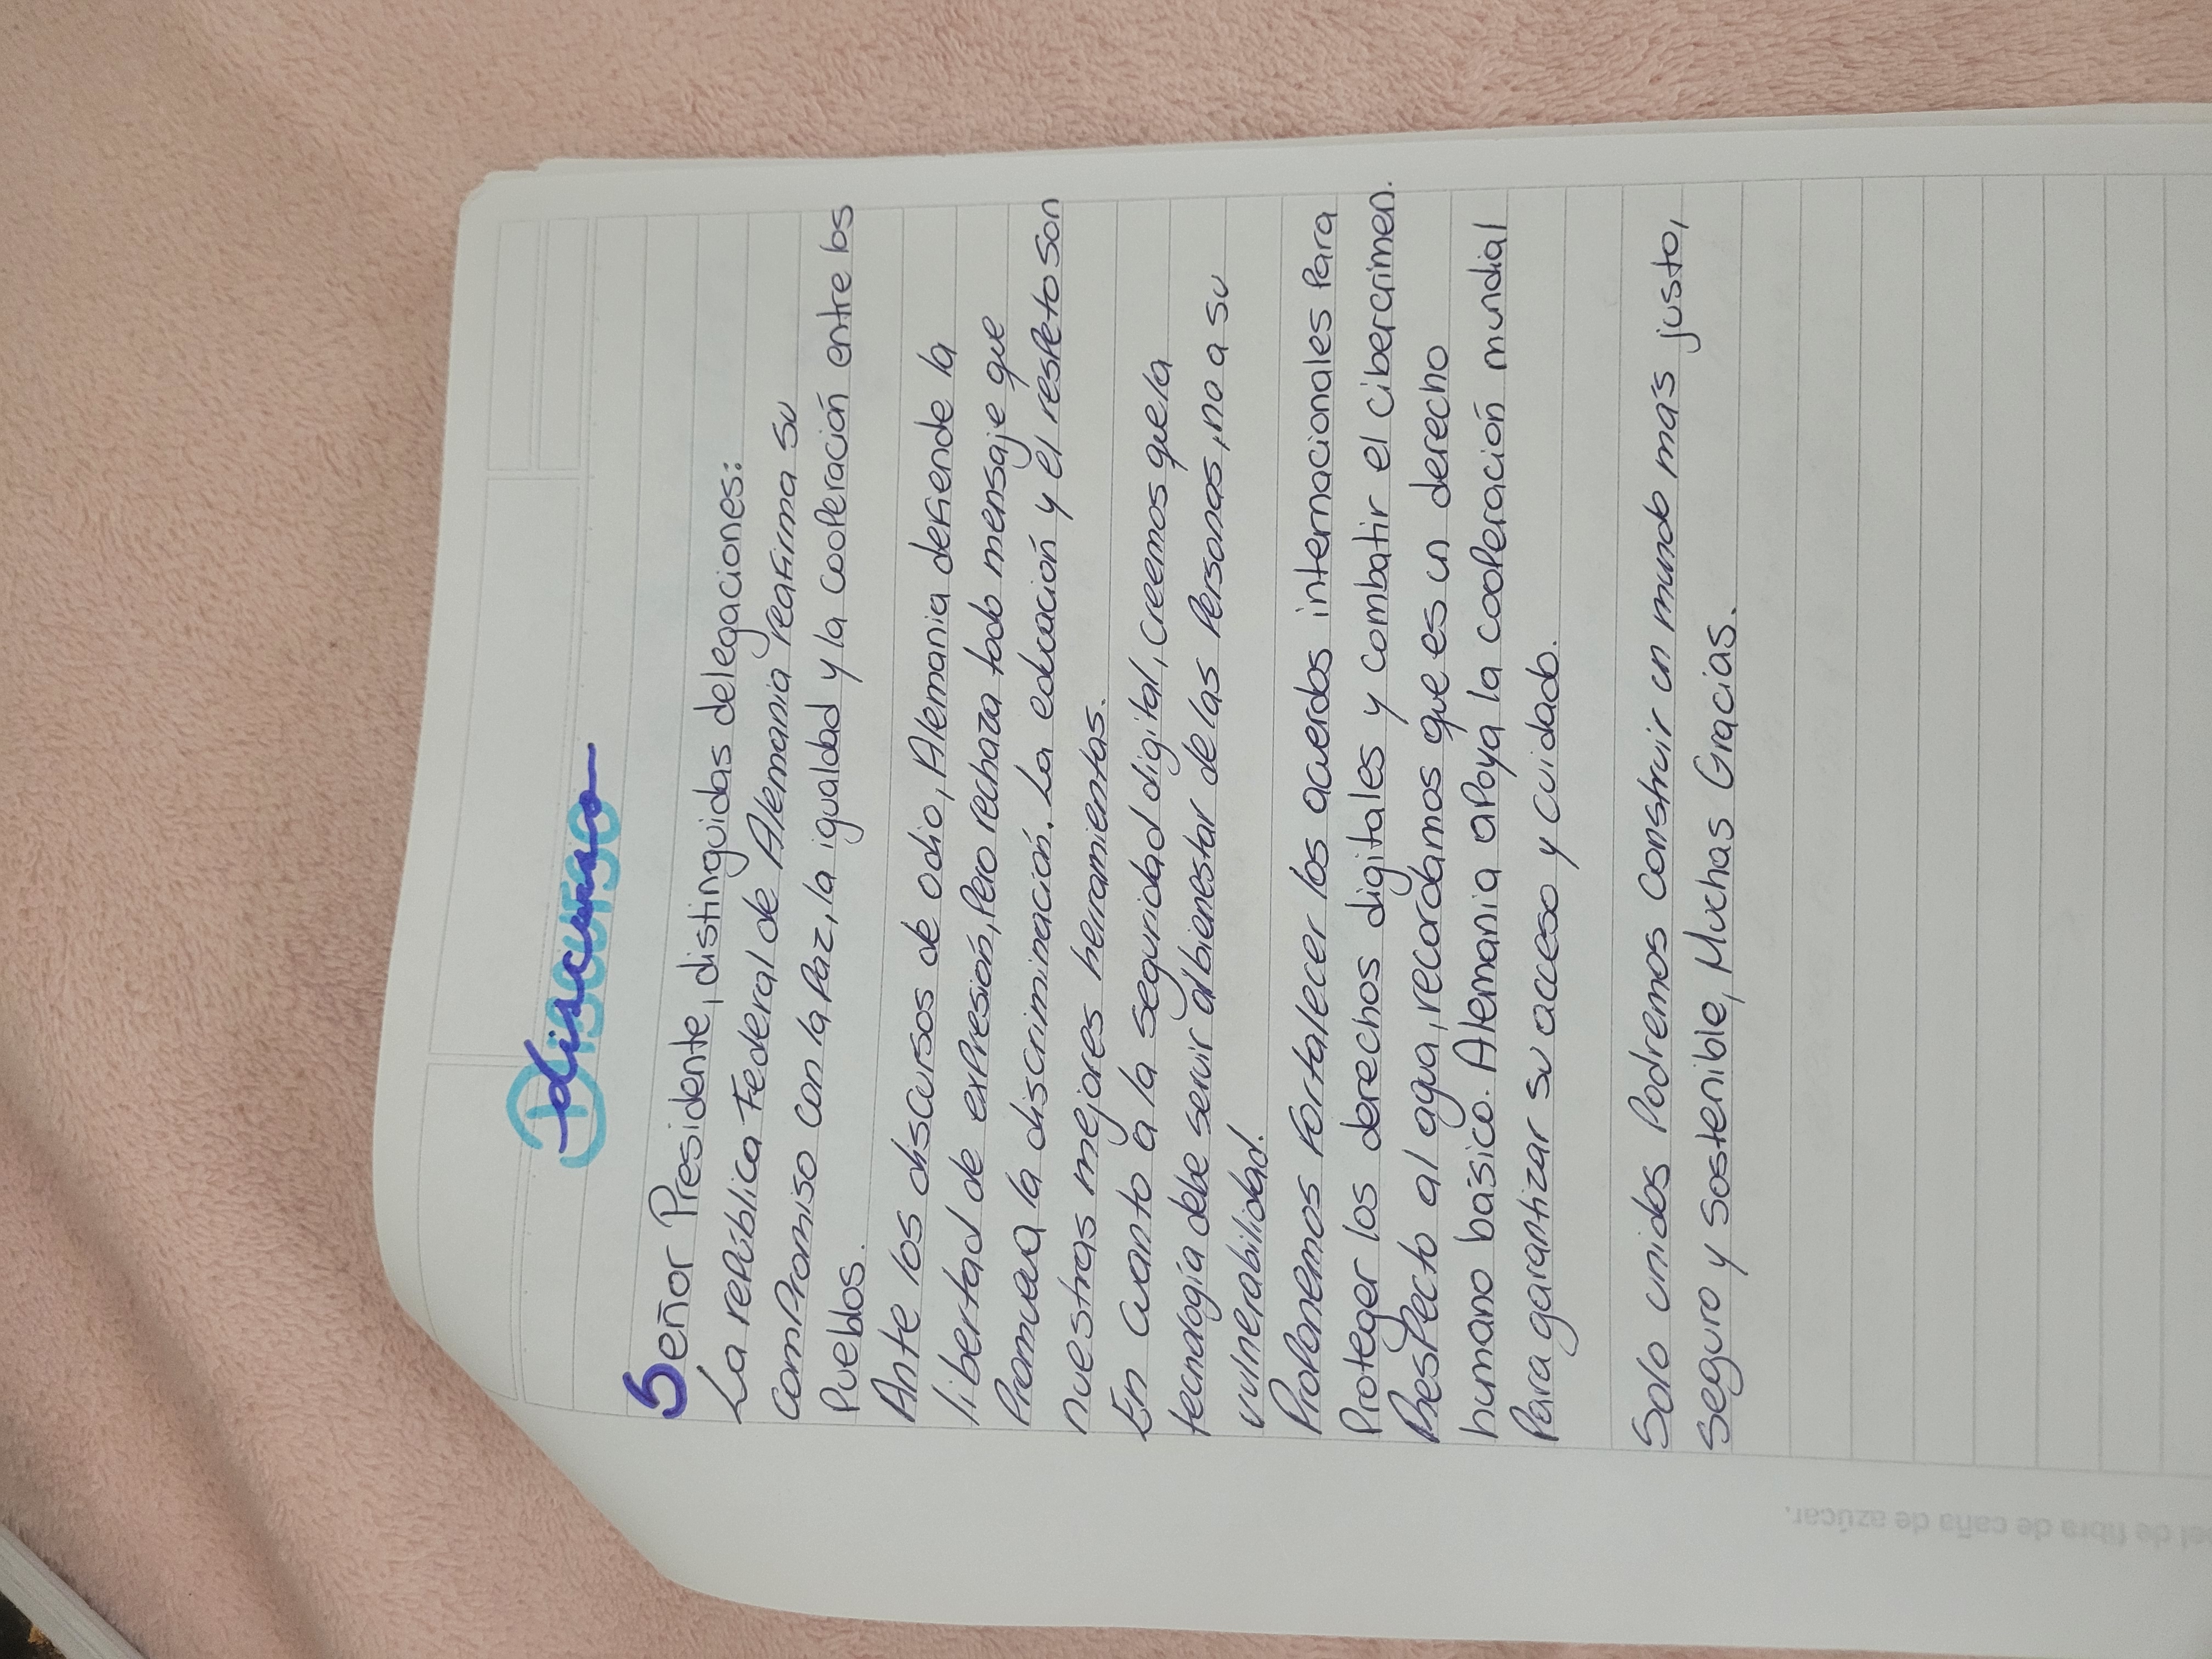 Discurso
Señor Presidente, distinguidas delegaciones:
La república Federal de Alemania reafirma su
compromiso con la Paz, la igualdad y la cooperación entre los
Pueblos.
Ante los discursos de odio, Alemania defiende la
libertad de expresión, Pero rechaza todo mensaje que
Promueva la discriminación. La educación y el respeto son
nuestras mejores herramientas.
En cuanto a la seguridad digital, creemos que la
tecnología debe servir al bienestar de las Personas, no a su
vulnerabilidad.
Proponemos Fortalecer los acuerdos internacionales Para
Proteger los derechos digitales y combatir el cibercrimen.
Respecto al agua, recordamos que es un derecho
humano básico. Alemania apoya la cooperación mundial
Para garantizar su acceso y cuidado.
Solo unidos Podremos construir un mundo más justo,
seguro y sostenible, Muchas Gracias.
el de fibra de caña de azúcar.